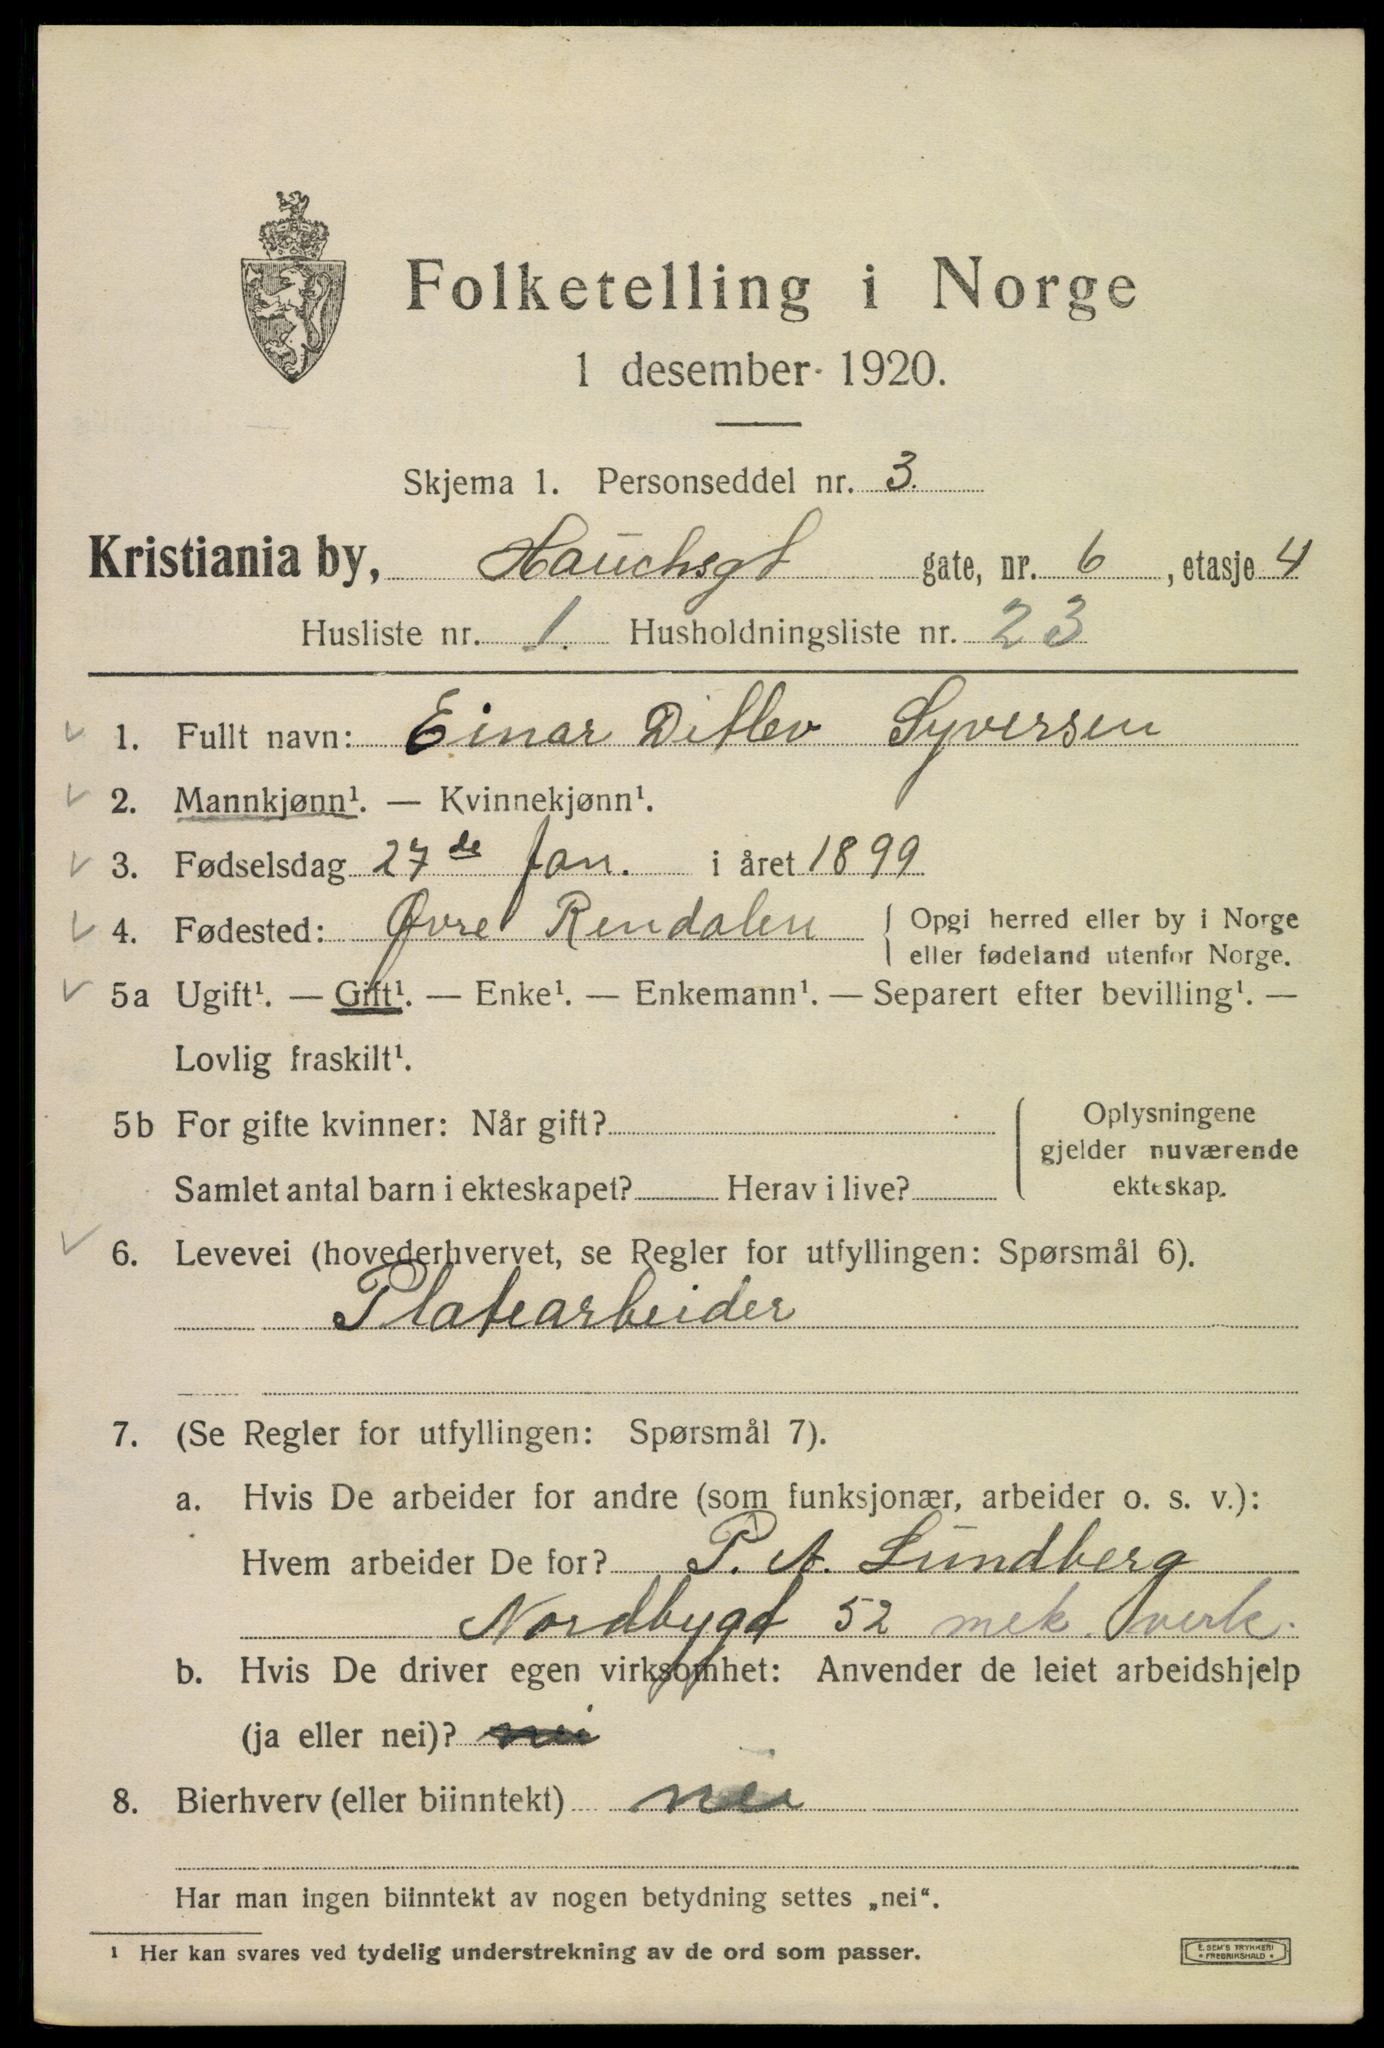 Folketelling i Norge
1 desember 1920.
Skjema 1. Personseddel nr. 3.
Kristiania by, Hauchsgt gate, nr. 6, etasje 4
Husliste nr. 1. Husholdningsliste nr. 23
1. Fullt navn: Einar Ditlev Syversen
2. Mannkjønn¹. — Kvinnekjønn¹.
3. Fødselsdag 27de Jan. i året 1899
4. Fødested: Øvre Rendalen { Opgi herred eller by i Norge
eller fødeland utenfor Norge.
5a Ugift¹. — Gift¹. — Enke¹. — Enkemann¹. — Separert efter bevilling¹. —
Lovlig fraskilt¹.
5b For gifte kvinner: Når gift?
Samlet antal barn i ekteskapet? Herav i live?
Oplysningene
gjelder nuværende
ekteskap.
6. Levevei (hovederhvervet, se Regler for utfyllingen: Spørsmål 6).
Platearbeider
7. (Se Regler for utfyllingen: Spørsmål 7).
a. Hvis De arbeider for andre (som funksjonær, arbeider o. s. v.):
Hvem arbeider De for? P. A. Lundberg
Nordbygt 52 mek. verk.
b. Hvis De driver egen virksomhet: Anvender de leiet arbeidshjelp
(ja eller nei)? nei
8. Bierhverv (eller biinntekt) nei
Har man ingen biinntekt av nogen betydning settes „nei“.
¹ Her kan svares ved tydelig understrekning av de ord som passer.
E. SEM'S TRYKKERI
* FREDRIKSHALD *